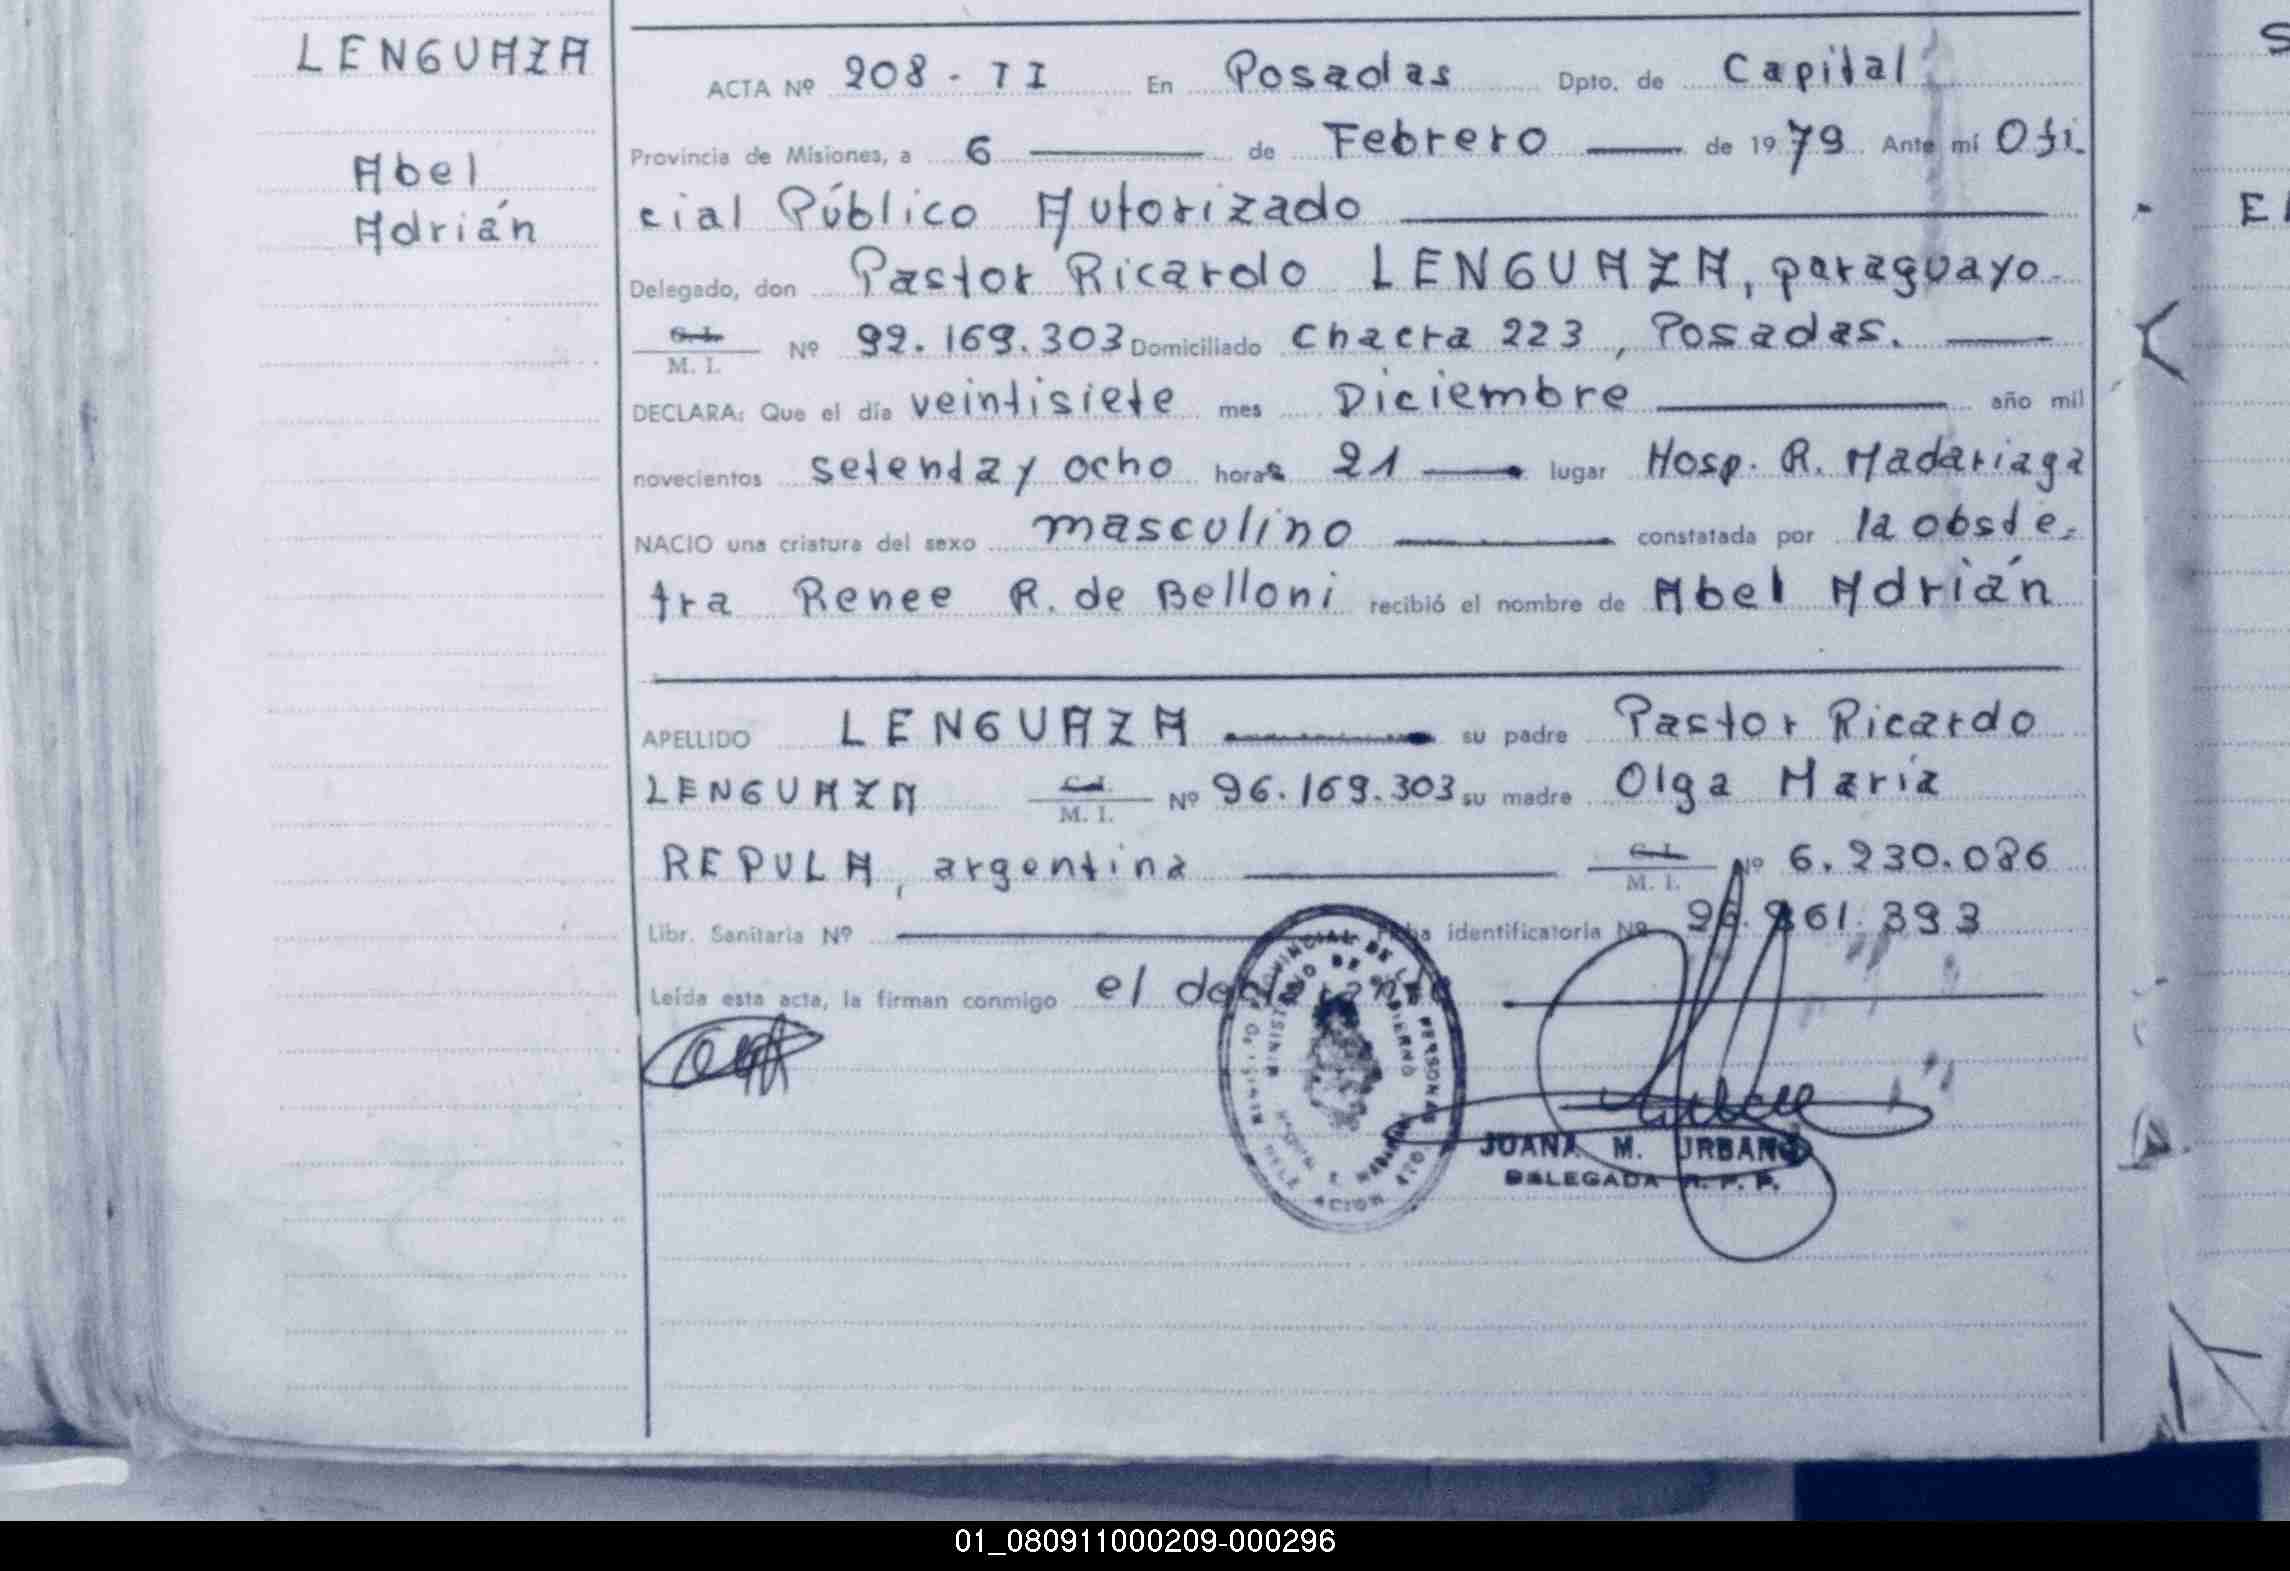 LENGUAZA
Abel
Adrián
ACTA Nº 208 - TI En Posadas Dpto. de Capital
Provincia de Misiones, a 6 de Febrero de 1979 Ante mí Ofi-
cial Público Autorizado
Delegado, don Pastor Ricardo LENGUAZA, paraguayo
C.I. M. I. Nº 92.169.303 Domiciliado Chacra 223, Posadas.
DECLARA: Que el día veintisiete mes Diciembre año mil
novecientos setenta y ocho horas 21 lugar Hosp. R. Madariaga
NACIO una criatura del sexo masculino constatada por la obste-
tra Renee R. de Belloni recibió el nombre de Abel Adrián
APELLIDO LENGUAZA su padre Pastor Ricardo
LENGUAZA C.I. M. I. Nº 96.169.303 su madre Olga María
REPULA, argentina C.I. M. I. Nº 6.230.086
Libr. Sanitaria Nº identificatoria Nº 96.961.393
Leída esta acta, la firman conmigo el declarante
JUANA M. URBANO
DELEGADA R. P. P.
01_080911000209-000296